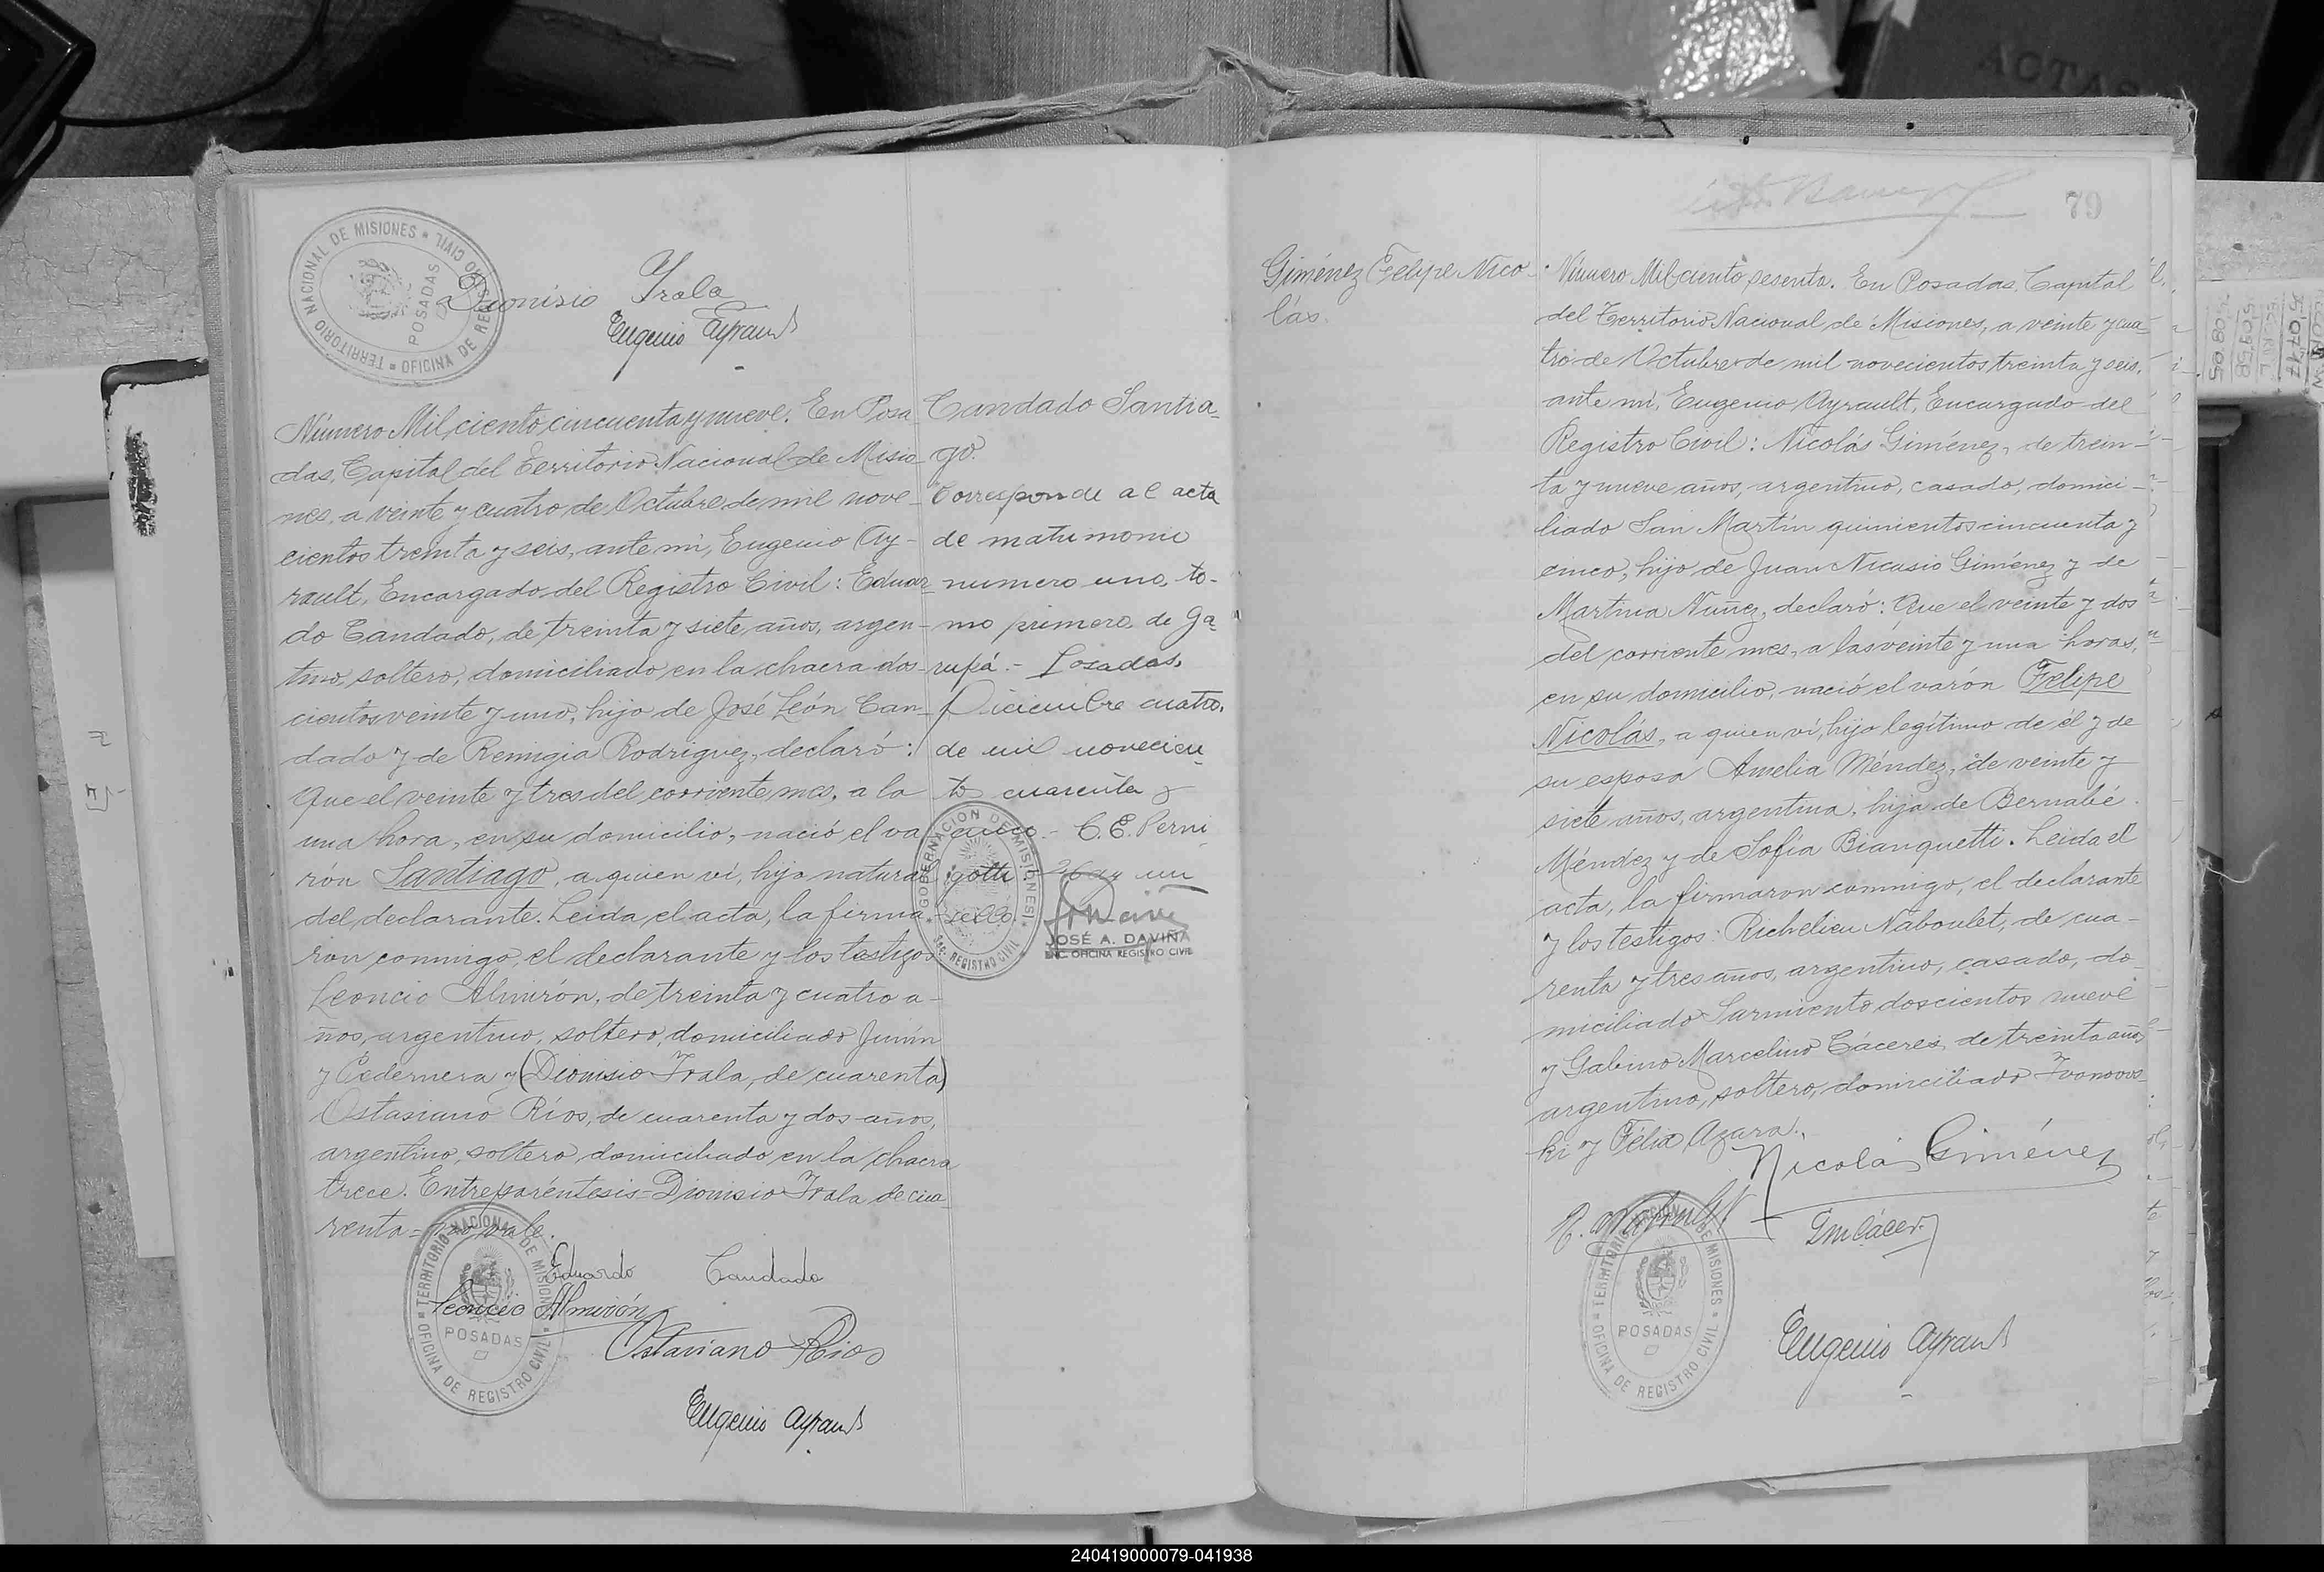 TERRITORIO NACIONAL DE MISIONES * OFICINA DE REGISTRO CIVIL
POSADAS
Dionisio Irala
Eugenio Ayrault
Número Mil ciento cincuenta y nueve. En Posa
das, Capital del Territorio Nacional de Misio
nes, a veinte y cuatro de Octubre de mil nove
cientos treinta y seis, ante mí, Eugenio Ay-
rault, Encargado del Registro Civil: Eduar
do Candado, de treinta y siete años, argen-
tino, soltero, domiciliado en la chacra dos-
cientos veinte y uno, hijo de José León Can-
dado y de Remigia Rodriguez, declaró:
Que el veinte y tres del corriente mes, a la
una hora, en su domicilio, nació el va
rón Santiago, a quien ví, hijo natural
del declarante. Leida el acta, la firma
ron conmigo, el declarante y los testigos
Leoncio Almirón, de treinta y cuatro a-
ños, argentino, soltero, domiciliado Junín
y Pedernera y (Dionisio Irala, de cuarenta)
Ostasiano Ríos, de cuarenta y dos años,
argentino, soltero, domiciliado en la chacra
trece. Entreparéntesis=Dionisio Irala de cua-
renta=no vale.
Eduardo Candado
Leoncio Almirón
Ostaviano Rios
Eugenio Ayrault
TERRITORIO NACIONAL DE MISIONES * OFICINA DE REGISTRO CIVIL
POSADAS
Candado Santia-
go.
Corresponde al acta
de matrimonio
numero uno, to-
mo primero, de Ga-
rupá.- Posadas,
Diciembre cuatro,
de mil novecien
tos cuarenta y
cinco.- C. E. Perni
gotti. Hay un
sello.
GOBERNACION DE MISIONES
REGISTRO CIVIL
JOSÉ A. DAVIÑA
ENC. OFICINA REGISTRO CIVIL
79
Giménez Felipe Nico-
lás.
Número Mil ciento sesenta. En Posadas, Capital
del Territorio Nacional de Misiones, a veinte y cua-
tro de Octubre de mil novecientos treinta y seis,
ante mí, Eugenio Ayrault, Encargado del
Registro Civil: Nicolás Giménez, de trein-
ta y nueve años, argentino, casado, domici-
liado San Martín quinientos cincuenta y
cinco, hijo de Juan Nicasio Giménez y de
Martina Nunez, declaró: Que el veinte y dos
del corriente mes, a las veinte y una horas,
en su domicilio, nació el varón Felipe
Nicolás, a quien ví, hijo legítimo de él y de
su esposa Amelia Méndez, de veinte y
siete años, argentina, hija de Bernabé
Méndez y de Sofía Bianquetti. Leida el
acta, la firmaron conmigo, el declarante
y los testigos: Richelieu Naboulet, de cua-
renta y tres años, argentino, casado, do-
miciliado Sarmiento doscientos nueve
y Gabino Marcelino Cáceres, de treinta años,
argentino, soltero, domiciliado Ivanows-
ki y Félix Azara.
Nicolás Giménez
Gmcácer
Eugenio Ayrault
TERRITORIO NACIONAL DE MISIONES * OFICINA DE REGISTRO CIVIL
POSADAS
240419000079-041938